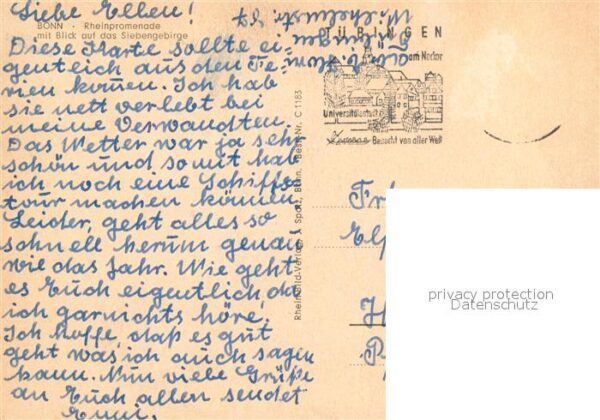 Liebe Ellen!
BONN · Rheinpromenade
mit Blick auf das Siebengebirge
Diese Karte sollte ei-
gentlich aus den Fe-
rien kommen. Ich hab
sie nett verlebt bei
meine Verwandten.
Das Wetter war ja sehr
schön und somit hab
ich noch eine Schiffs-
tour machen können.
Leider, geht alles so
schnell herum genau
wie das Jahr. Wie geht
es Euch eigentlich, da
ich garnichts höre,
Ich hoffe, daß es gut
geht was ich auch sagen
kann. Nun viele Grüße
an Euch allen sendet
Enni.
Rheinbild-Verlag A. Spatz, Bonn. Best.-Nr. C 1183
TÜBINGEN
am Neckar
Universitätsstadt
Besucht von aller Welt
privacy protection
Datenschutz